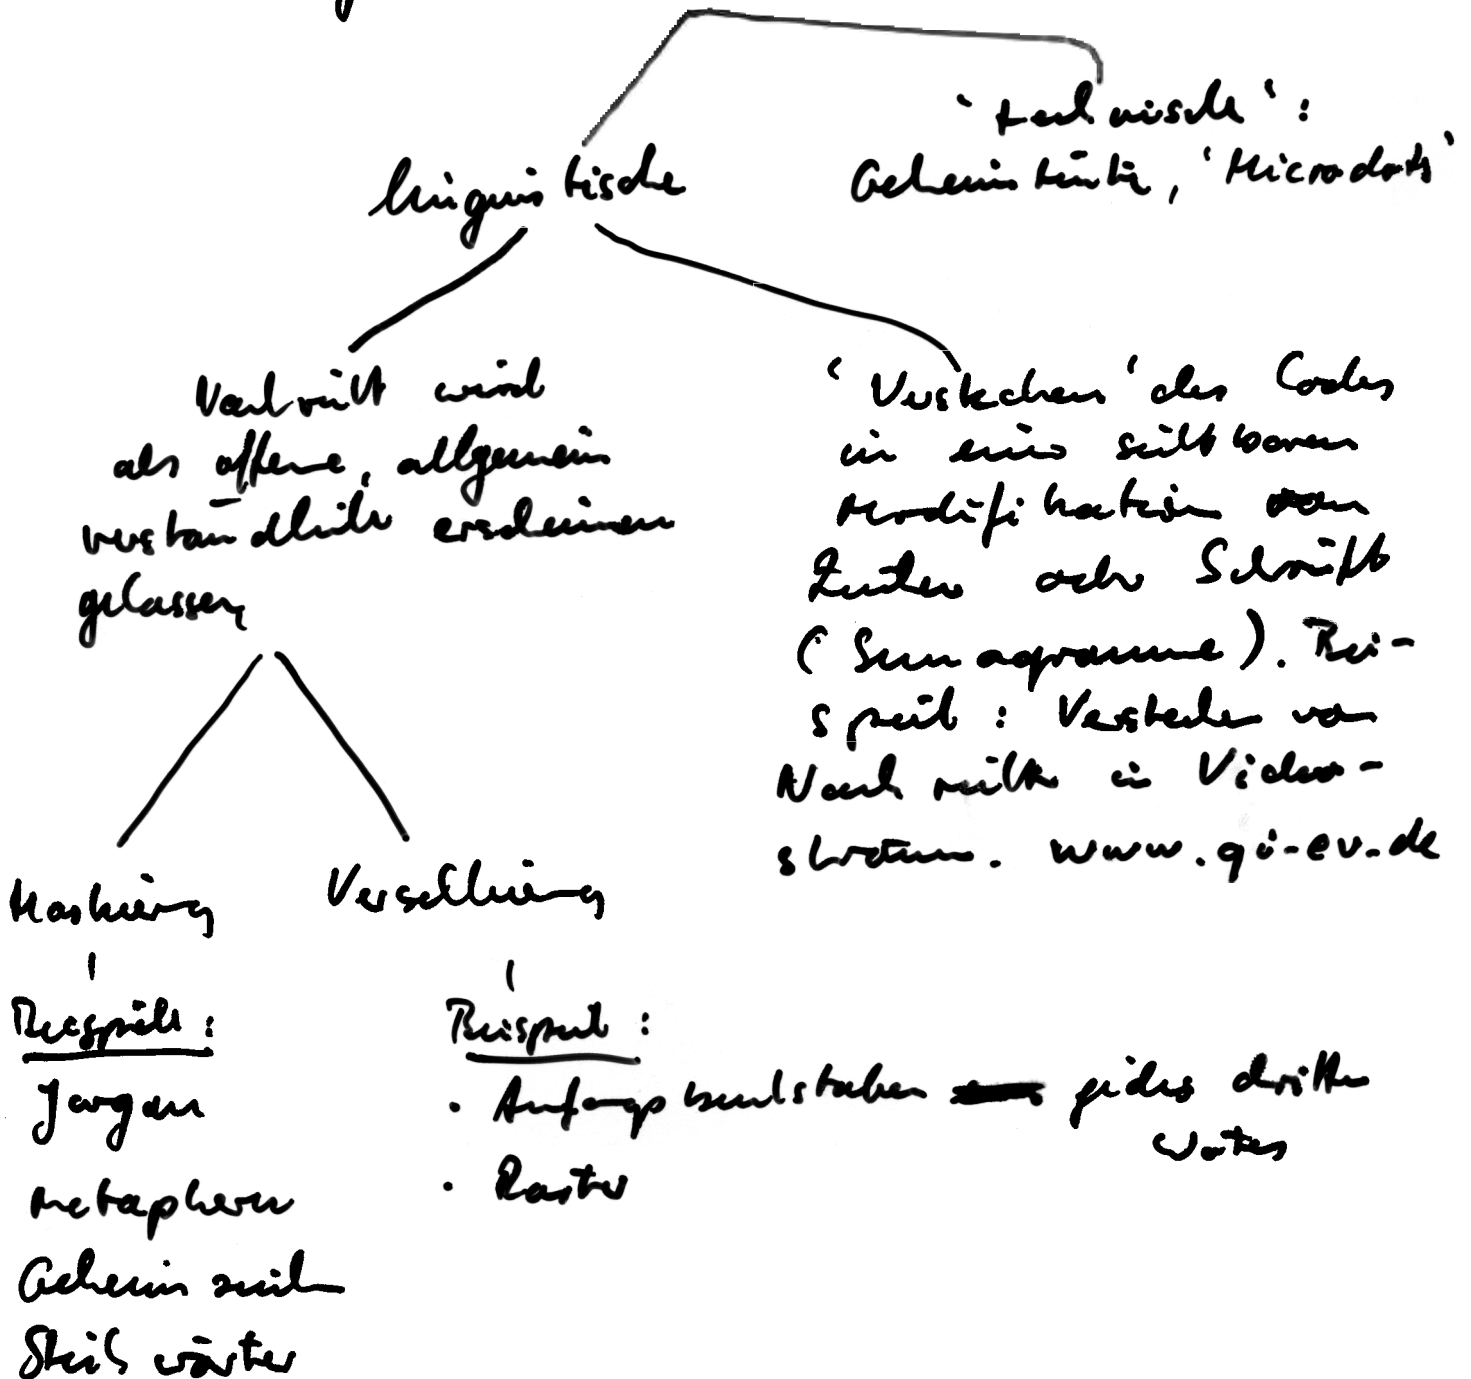 'technische':
Geheimtinte, 'Microdots'
linguistische
Nachricht wird
als offene, allgemein
verständliche erscheinen
gelassen
'Verstecken' des Codes
in eine sichtbaren
Modifikation von
Zeichen oder Schrift
(Semagramme). Bei-
spiel: Verstecken von
Nachricht in Video-
strömen. www.gi-ev.de
Maskierung
Verschleierung
Beispiele:
Jargon
Metaphern
Geheimzeichen
Beispiel:
• Anfangsbuchstaben jedes dritten
Wortes
• Raster